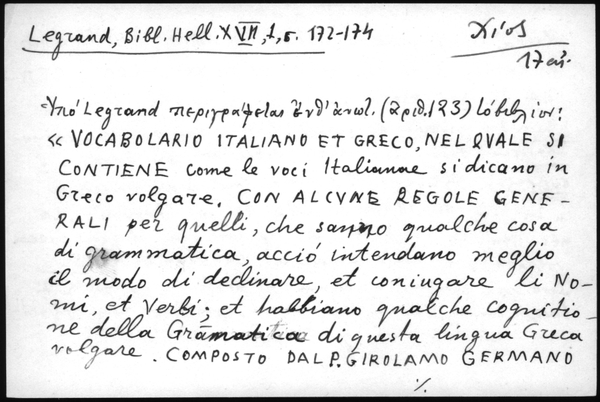 Legrand, Bibl. Hell. XVII, 1, σ. 172-174
Χίος
17 αἰ.
Ὑπό Legrand περιγράφεται ἐνθ' ἀνωτ. (ἀριθ. 123) τό βιβλίον:
« VOCABOLARIO ITALIANO ET GRECO, NEL QVALE SI
CONTIENE come le voci Italianae si dicano in
Greco volgare. CON ALCVNE REGOLE GENE-
RALI per quelli, che sanno qualche cosa
di grammatica, acciò intendano meglio
il modo di declinare, et coniugare li No-
mi, et Verbi; et habbiano qualche cognitio-
ne della Gramatica di questa lingua Greca
volgare. COMPOSTO DAL P. GIROLAMO GERMANO
./.